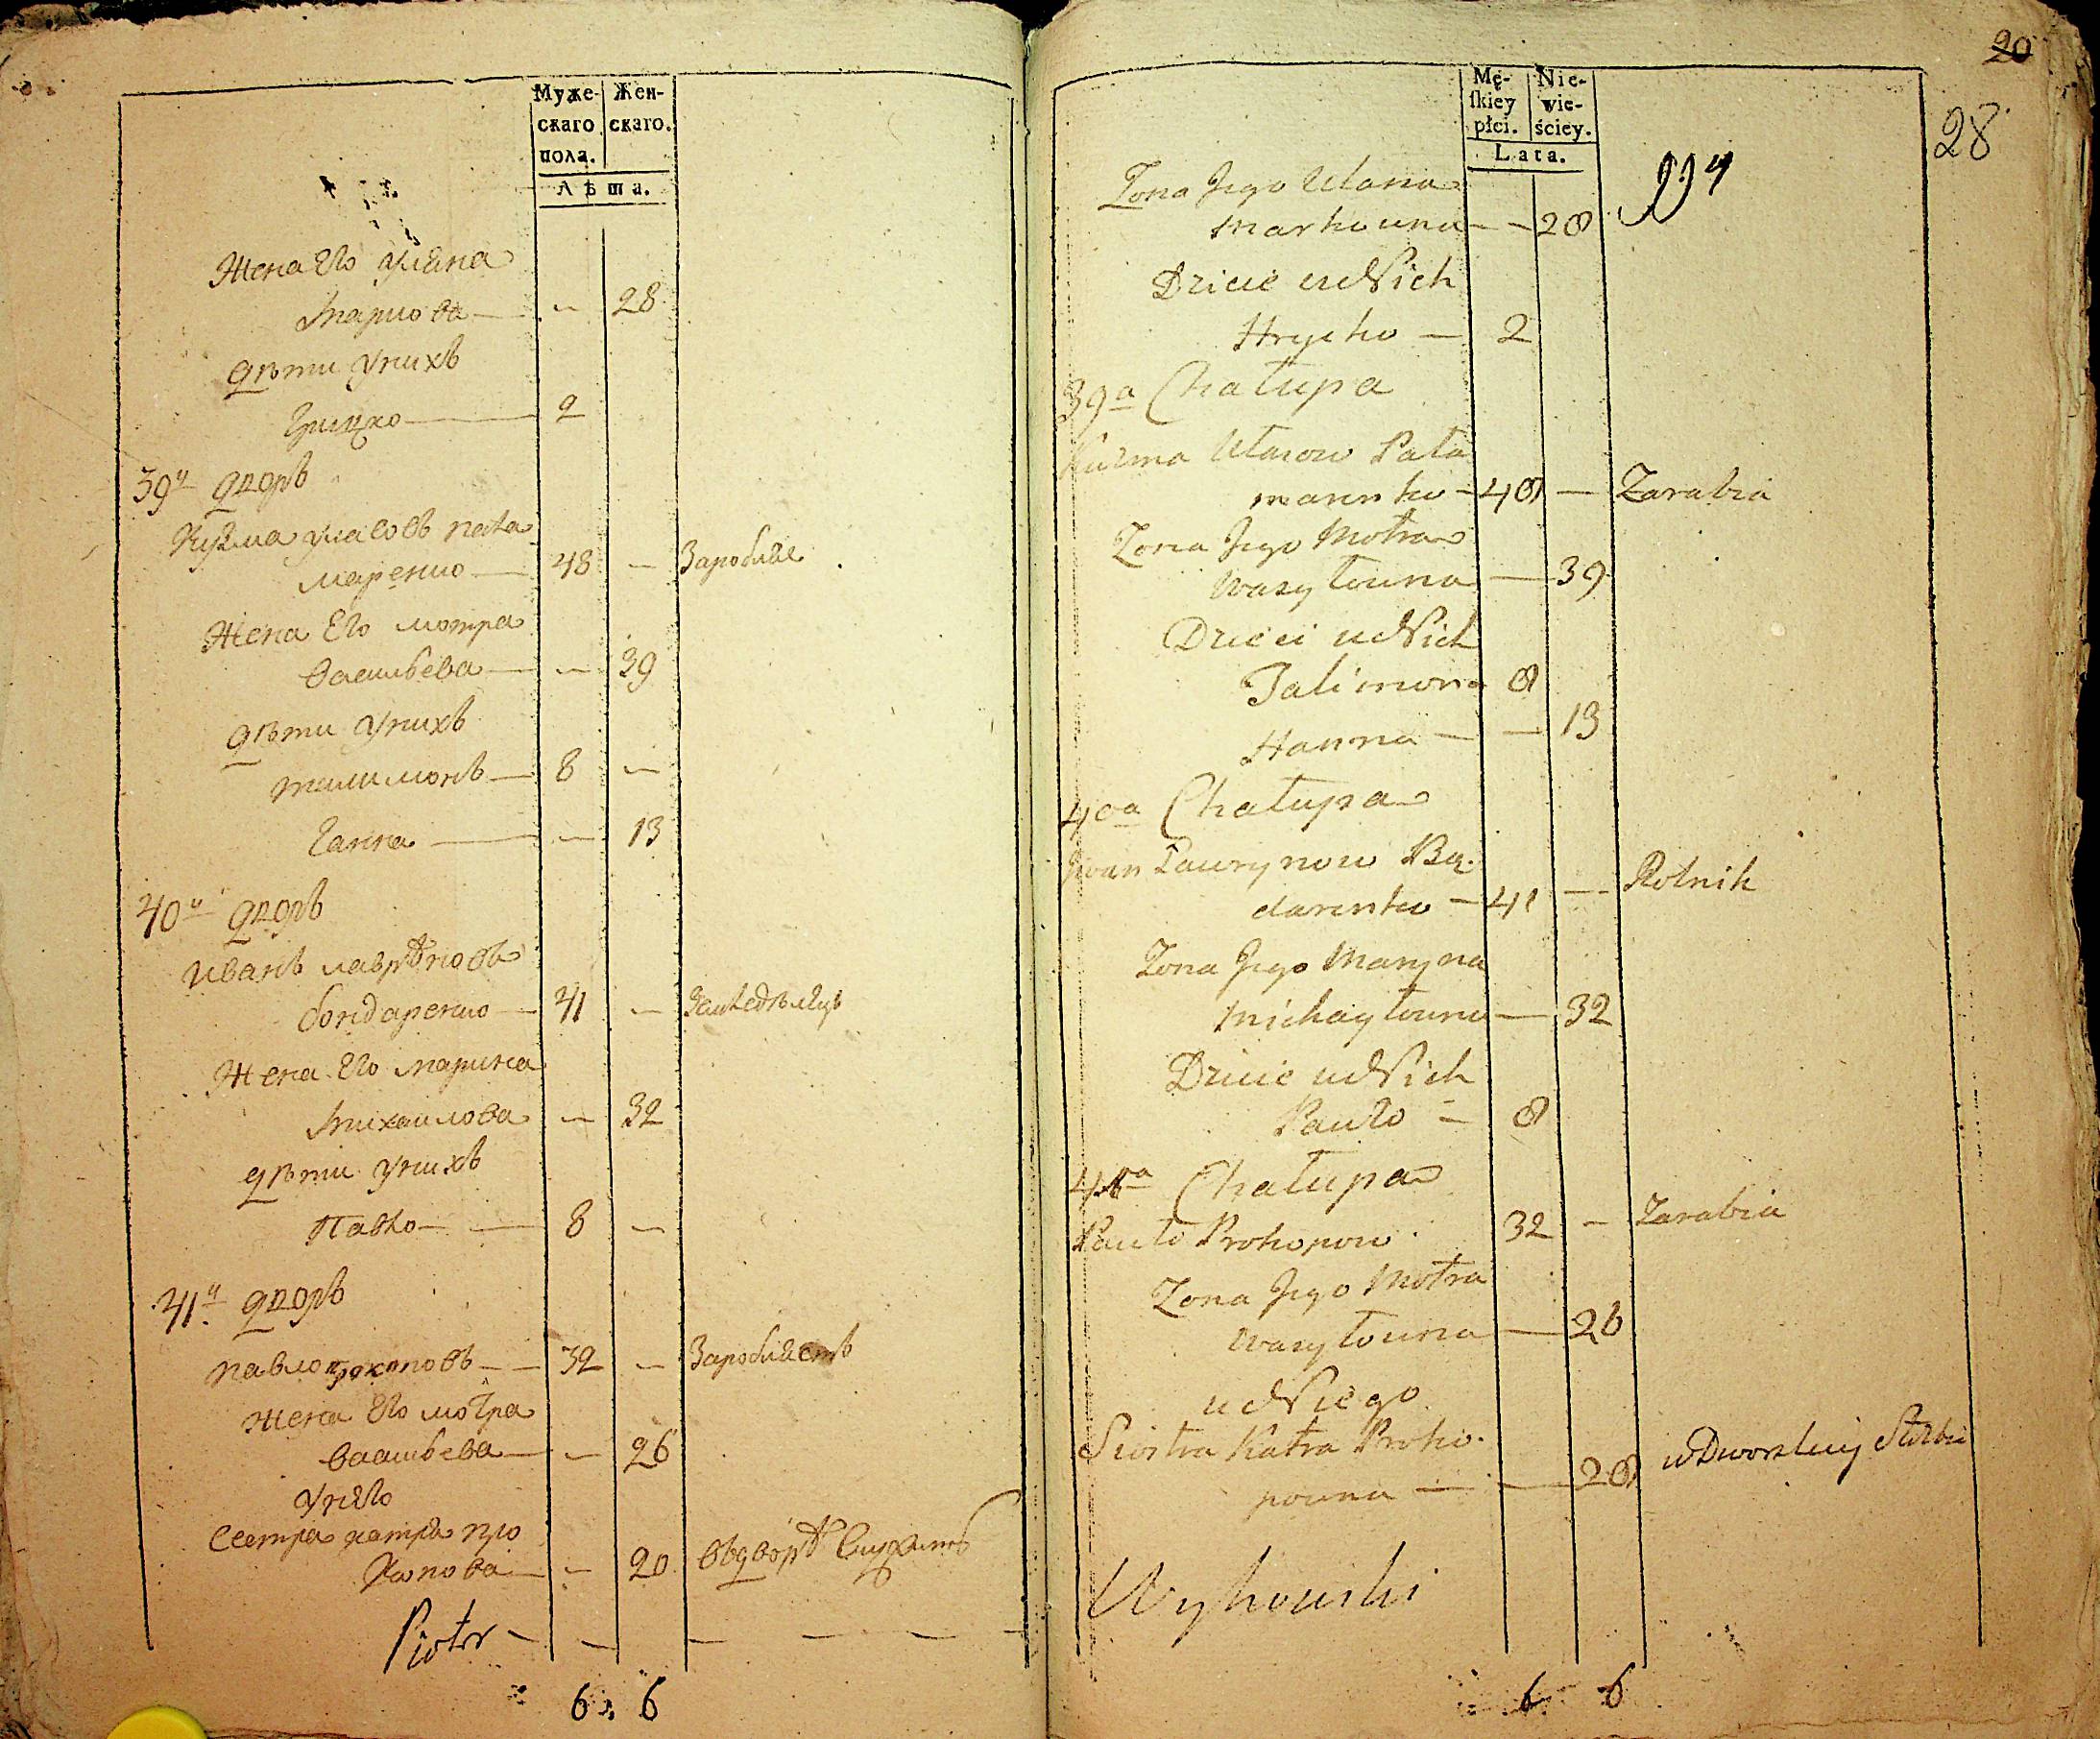 Муже-
скаго
пола.
Жен-
скаго.
Лѣта.
Жена Его Уляна
Маркова — — 28
Дѣти Унихъ
Грицко — 2
39й Дворъ
Кузма Уласовъ Пала
маренко — 48 — Заробляе
Жена Его Мотра
Василева — — 39
Дѣти Унихъ
Талимонъ — 8 —
Ганна — — 13
40й Дворъ
Иванъ Лаврѣновъ
бондаренко — 41 —
Жена Его Марина
Михаилова — — 32
Дѣти Унихъ
Павло — 8 —
41й Дворъ
Павло Прокоповъ — 32 — Заробляетъ
Жена Его Мотра
Василева — — 26
Унего
Сестра Катра Про
копова — — 20 Вдворѣ Служитъ
Piotr — — — — — —
6. 6
20
28
Mę-
skiey
płci.
Nie-
wie-
ściey.
Lata.
Żona Jego Ulana
Markowna — — 28
Dzieie udNich
Hrycko — 2
39a Chałupa
Kuzma Ułasow Pała
marenko — 48 — Zarabia
Żona Jego Motra
Wasyłowna — 39
Dzieci udNich
Talimon 8
Hanna — — 13
40a Chałupa
Jwan Ławrynow Bą-
darenko — 41 — Rolnik
Żona Jego Maryna
Michayłowna — 32
Dzieie udNich
Pawło — 8
41a Chałupa
Pawło Prokopow 32 — Zarabia
Żona Jego Motra
Wasyłowna — 26
udNiego
Siostra Katra Proko-
powna — — 20 wDworskiey Służbie
Wyhowski
6 6